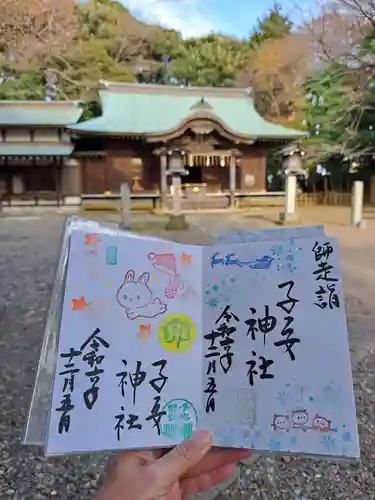 師走詣
子安
神社
令和六年
十二月五日
子安
神社
令和六年
十二月五日
卯